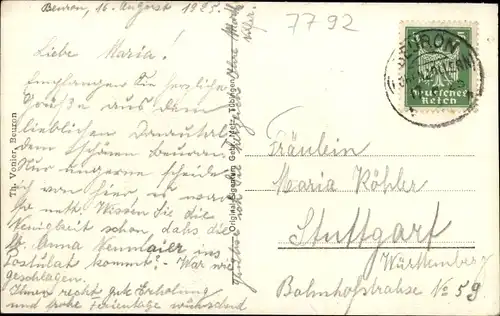 Beuron, 16. August 1925.
Liebe Maria!
Empfangen Sie herzliche
Grüße aus dem
lieblichen Donautal
dem schönen Beuron.
Nur ungerne scheide
ich von hier
so nett. Wissen Sie die
Neuigkeit schon, daß die
Anna Neumaier ins
Postulat kommt? War wie
geschlagen.
Ihnen recht gute Erholung
und frohe Ferientage wünschend
7792
BEURON
Deutsches
Reich
Th. Vonier, Beuron
Original-Eigentum Gebr. Metz, Tübingen
Fräulein
Maria Köhler
Stuttgart
Württemberg
Bahnhofstrasse No 59